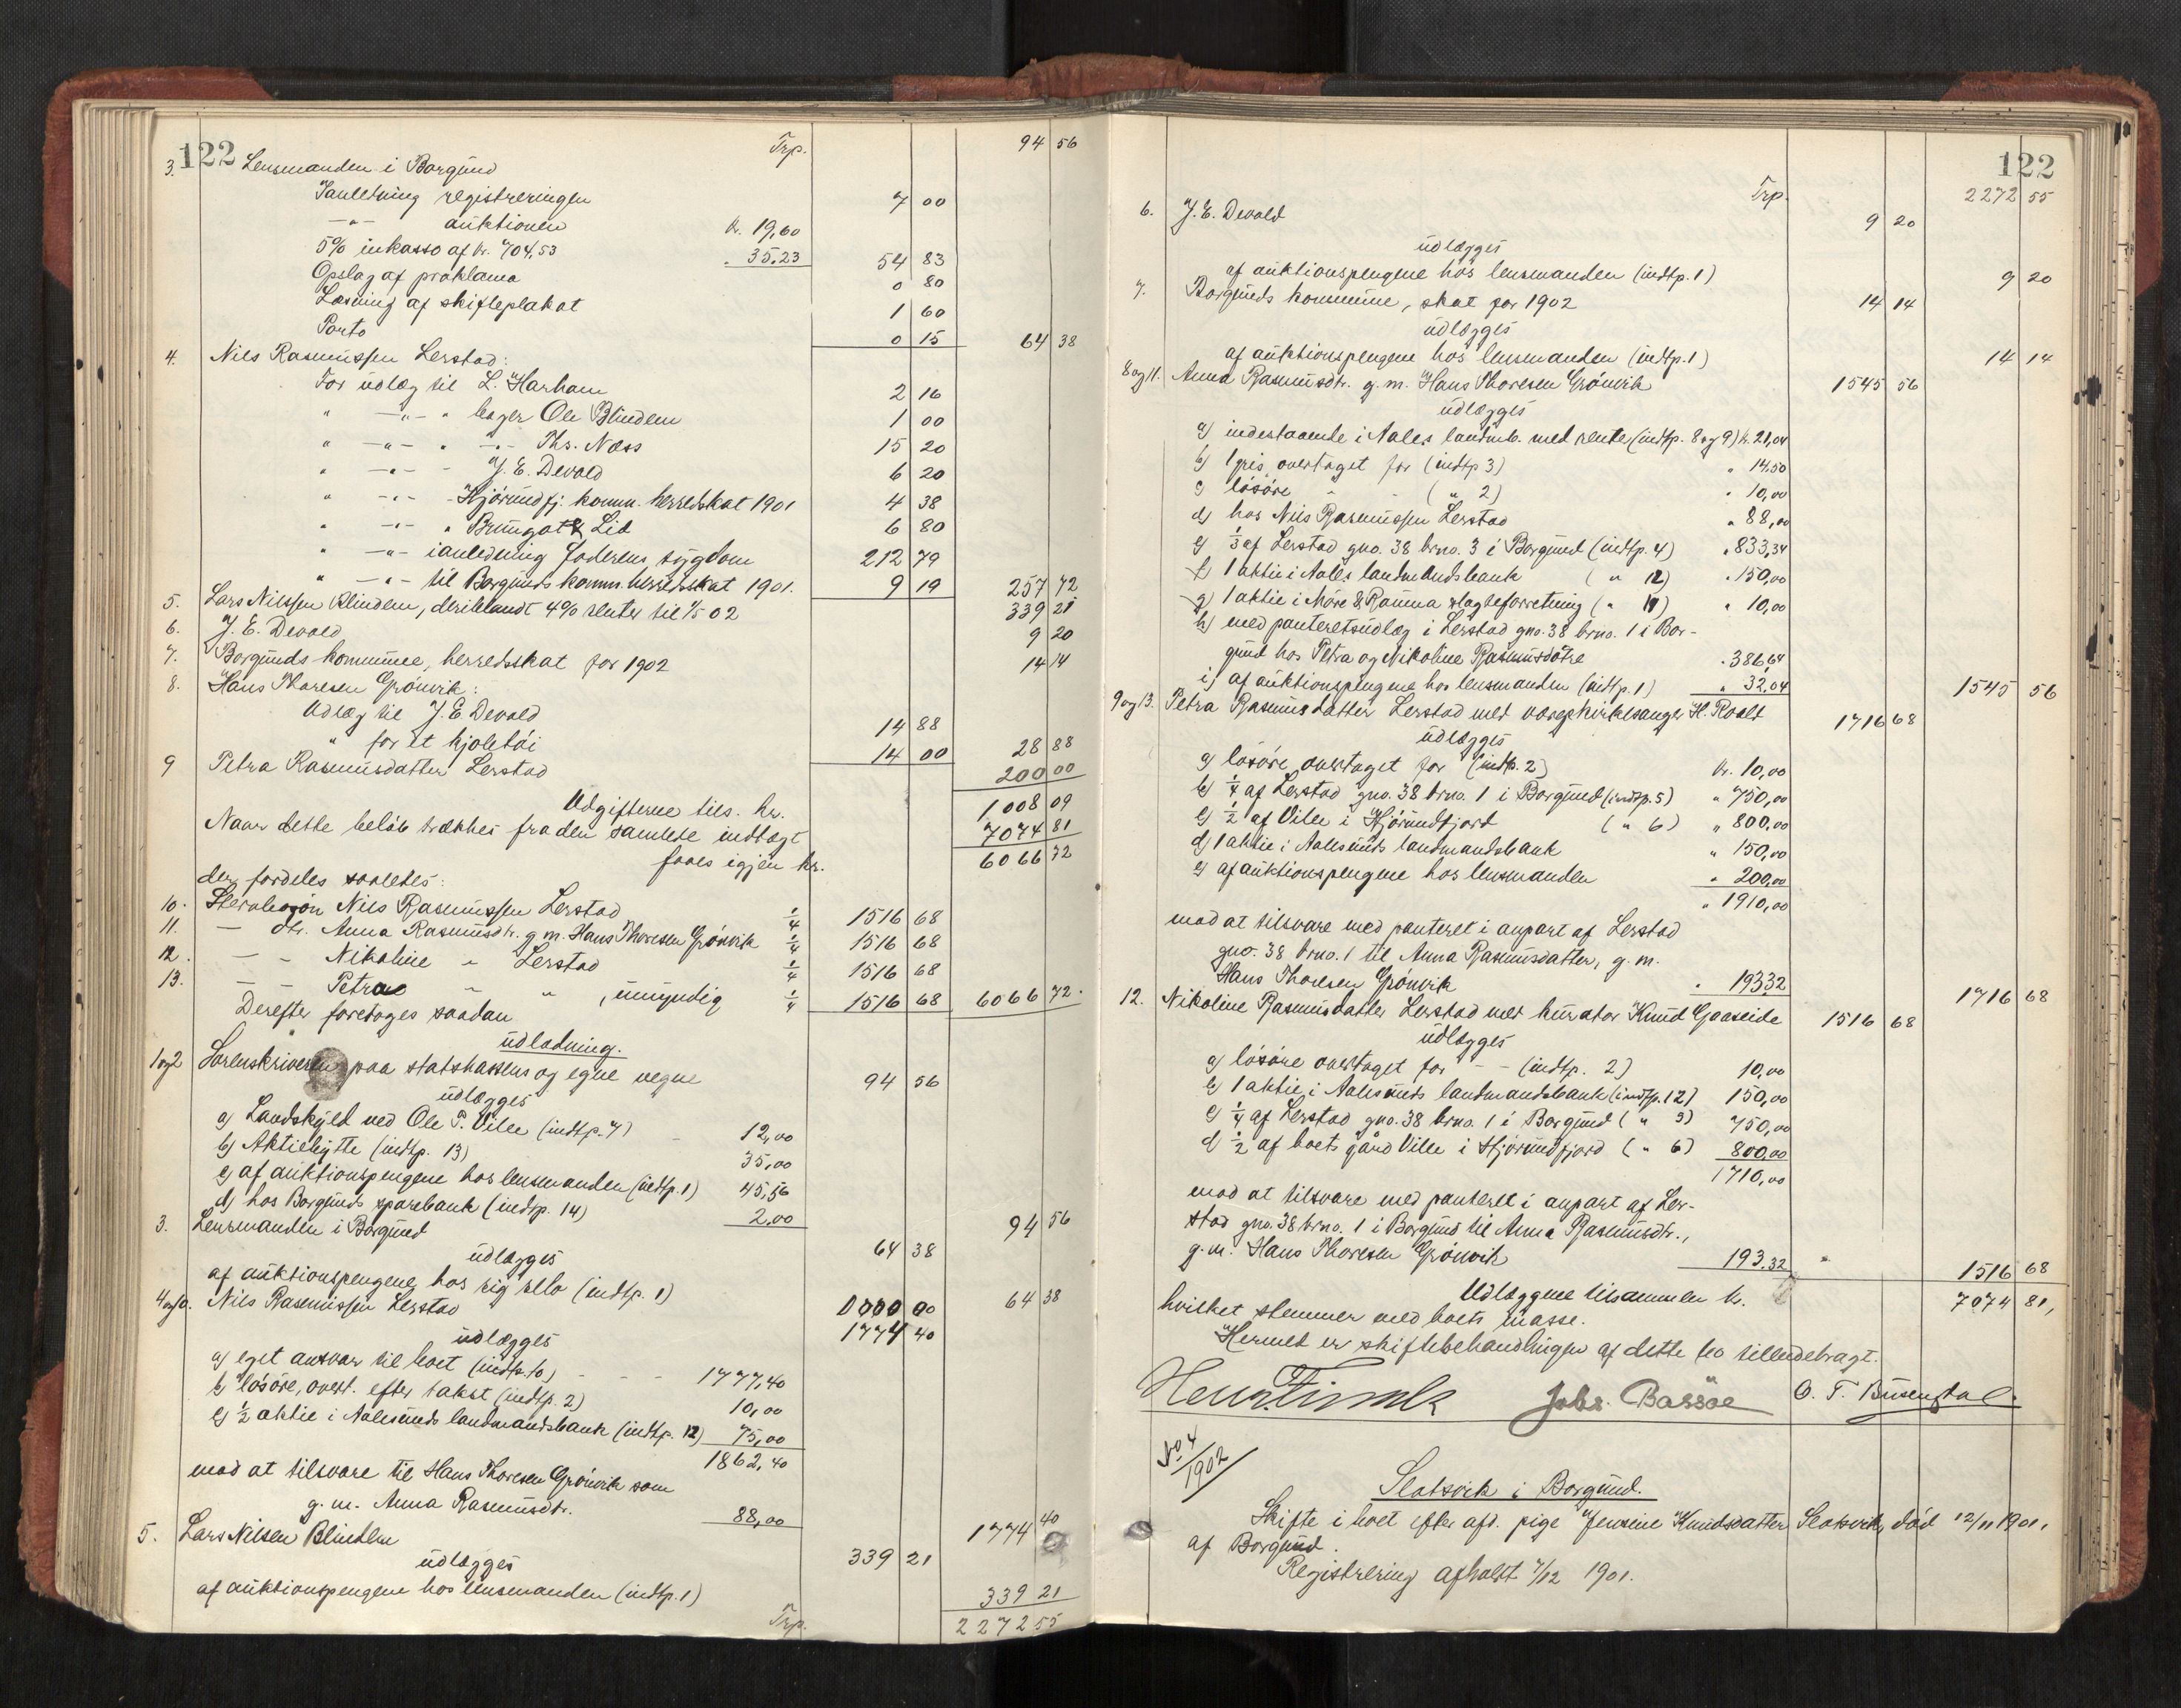 122
Trp. 94 56
3. Lensmanden i Borgund
Ianledning registreringen 7 00
—"— auktionen kr. 19,60
5% inkasso af kr. 704,53 " 35,23 54 83
Opslag af proklama 0 80
Læsning af skifteplakat 1 60
Porto 0 15 64 38
4. Nils Rasmussen Lerstad:
For udlæg til L. Harham 2 16
" —"— " bager Ole Blindem 1 00
" —"— " —"— Ths. Næss 15 20
" —"— " J. E. Devold 6 20
" —"— " Hjørundfj. komm. herredskat 1901 4 38
" —"— " Brungot & Lid 6 80
" —"— ianledning faderens sygdom 212 79
" —"— til Borgunds komm. herredsskat 1901. 9 19 257 72
5. Lars Nilsen Blindem, deriblandt 4% renter til 1/5 02 339 21
6. J. E. Devold 9 20
7. Borgunds kommune, herredsskat for 1902 14 14
8. Hans Thoresen Grönvik:
Udlæg til J. E. Devold 14 88
" for et kjoletöi 14 00 28 88
9 Petra Rasmusdatter Lerstad 200 00
Udgifterne tils. kr. 1008 09
Naar dette beløb trækkes fra den samlede indtægt 7074 81
faaes igjen kr. 6066 72
der fordeles saaledes:
10. Stervbosön Nils Rasmussen Lerstad 1/4 1516 68
11. — dtr. Anna Rasmusdtr. g. m. Hans Thoresen Grönvik 1/4 1516 68
12. — " Nikoline " Lerstad 1/4 1516 68
13. — — Petra " " , umyndig 1/4 1516 68 6066 72.
Derefter foretages saadan
udlodning.
1og2 Sorenskriveren paa statskassens og egne vegne 94 56
udlægges
a) Landskyld ved Ole P. Ville (indtp. 7) 12,00
b) Aktiehytte (indtp. 13) 35,00
c) af auktionspengene hos lensmanden (indtp. 1) 45,56
d) hos Borgunds sparebank (indtp. 14) 2,00 94 56
3. Lensmanden i Borgund 64 38
udlægges
af auktionspengene hos sig selv (indtp. 1) 64 38
4og10. Nils Rasmussen Lerstad
1774 40
udlægges
a) eget ansvar til boet (indtp. 10) - - - 1777,40
b) lösöre, overt. efter takst (indtp. 2) 10,00
c) 1/2 aktie i Aalesunds landmandsbank (indtp. 12) 75,00
1862,40
mod at tilsvare til Hans Thoresen Grönvik som
g. m. Anna Rasmusdtr. 88,00 1774 40
5. Lars Nilsen Blindem 339 21
udlægges
af auktionspengene hos lensmanden (indtp. 1) 339 21
Trp. 2272 55
122
Trp. 2272 55
6. J. E. Devold 9 20
udlægges
af auktionspengene hos lensmanden (indtp. 1) 9 20
7. Borgunds kommune, skat for 1902 14 14
udlægges
af auktionspengene hos lensmanden (indtp. 1) 14 14
8og11. Anna Rasmusdtr. g. m. Hans Thoresen Grönvik 1545 56
udlægges
a) indestaaende i Aales landmb. med rente (indtp. 8 og 9) kr. 21,04
b) 1 gris overtaget for (indtp 3) " 14,50
c) lösöre " " ( " 2) " 10,00
d) hos Nils Rasmussen Lerstad " 88,00
e) 1/3 af Lerstad gno. 38 brno. 3 i Borgund (indtp. 4) " 833,34
f) 1 aktie i Aales landmandsbank ( " 12) " 150,00
g) 1 aktie i Möre & Romsa slagteforretning ( " 11) " 10,00
h) med panteretsudlæg i Lerstad gno. 38 brno. 1 i Bor-
gund hos Petra og Nikoline Rasmusdötre " 386,64
i) af auktionspengene hos lensmanden (indtp. 1) " 32,04 1545 56
9og13. Petra Rasmusdatter Lerstad med værge kirkesanger H. Roald 1716 68
udlægges
a) lösöre overtaget for (indtp. 2) kr. 10,00
b) 1/4 af Lerstad gno. 38 brno. 1 i Borgund (indtp. 5) " 750,00
c) 1/2 af Ville i Hjörundfjord ( " 6) " 800,00
d) 1 aktie i Aalesunds landmandsbank " 150,00
e) af auktionspengene hos lensmanden " 200,00
" 1910,00
mod at tilsvare med panteret i anpart af Lerstad
gno. 38 brno. 1 til Anna Rasmusdatter, g. m.
Hans Thoresen Grönvik " 193,32 1716 68
12. Nikoline Rasmusdatter Lerstad med kurator Knud Gaaseide 1516 68
udlægges
a) lösöre overtaget for - - (indtp. 2) 10,00
b) 1 aktie i Aalesunds landmandsbank (indtp. 12) 150,00
c) 1/4 af Lerstad gno. 38 brno. 1 i Borgund ( " 5) 750,00
d) 1/2 af boets gård Ville i Hjörundfjord ( " 6) 800,00
1710,00
mod at tilsvare med panteret i anpart af Ler-
stad gno. 38 brno. 1 i Borgund til Anna Rasmusdtr.,
g. m. Hans Thoresen Grönvik 193.32 " 1516 68
Udlæggene tilsammen kr. 7074 81,
hvilket stemmer med boets masse.
Hermed er skiftebehandlingen af dette bo tilendebragt.
Johs. Bassöe
No 4/1902
Slatsvik i Borgund.
Skifte i boet efter afd. pige Jensine Knudsdatter Slatsvik, död 12/11 1901,
af Borgund.
Registrering afholdt 7/12 1901.